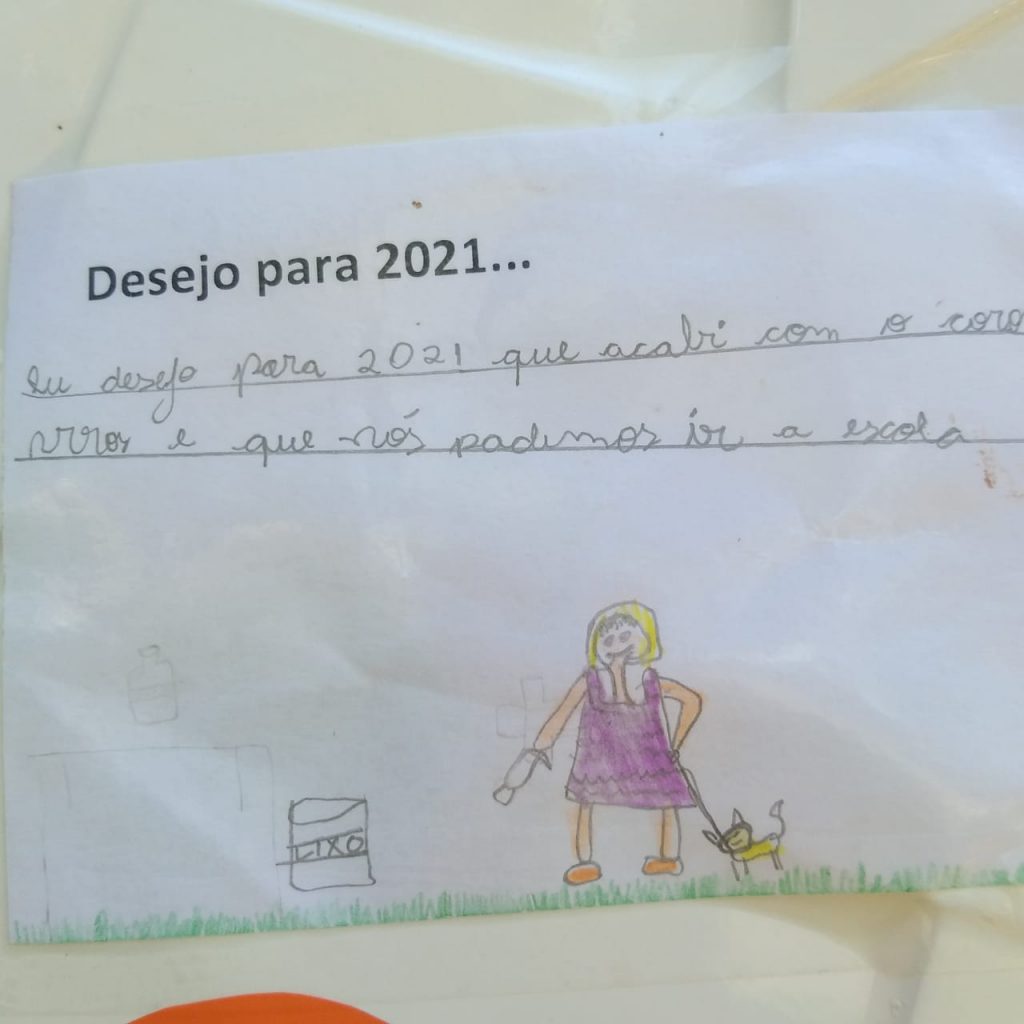 Desejo para 2021...
Eu desejo para 2021 que acabi com o coro
viros e que nós pademos ir a escola
LIXO